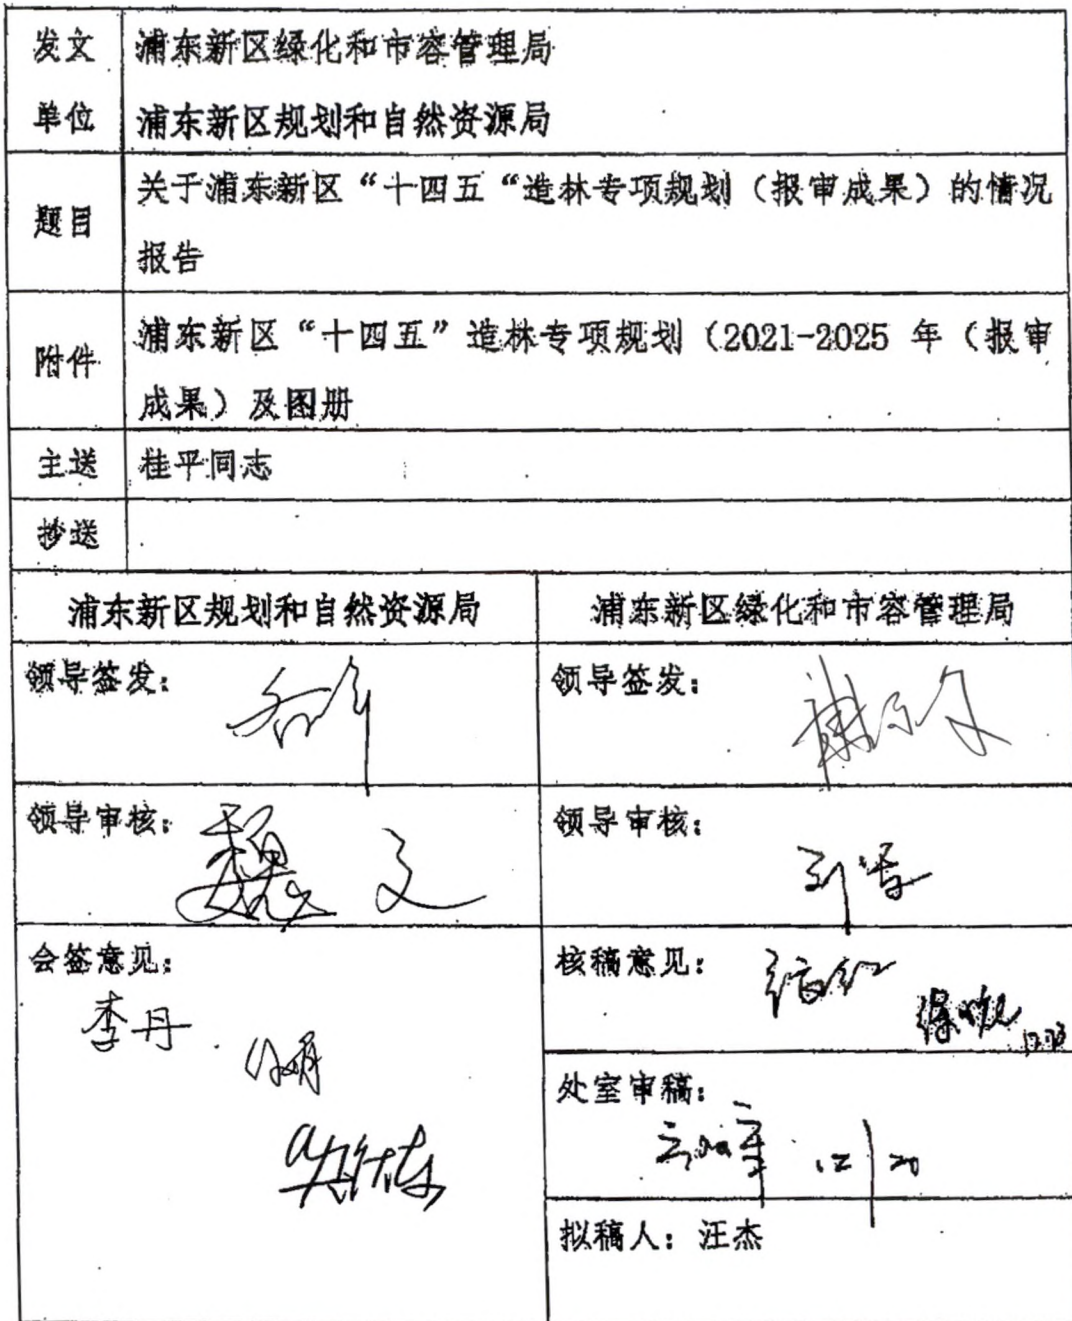 发文 浦东新区绿化和市容管理局
单位 浦东新区规划和自然资源局
题目 关于浦东新区“十四五“造林专项规划（报审成果）的情况
报告
附件 浦东新区“十四五”造林专项规划（2021-2025 年（报审
成果）及图册
主送 桂平同志
抄送
浦东新区规划和自然资源局 浦东新区绿化和市容管理局
领导签发： 领导签发：
领导审核：魏文 领导审核：
会签意见： 核稿意见：
李丹
处室审稿：
12/20
拟稿人：汪杰